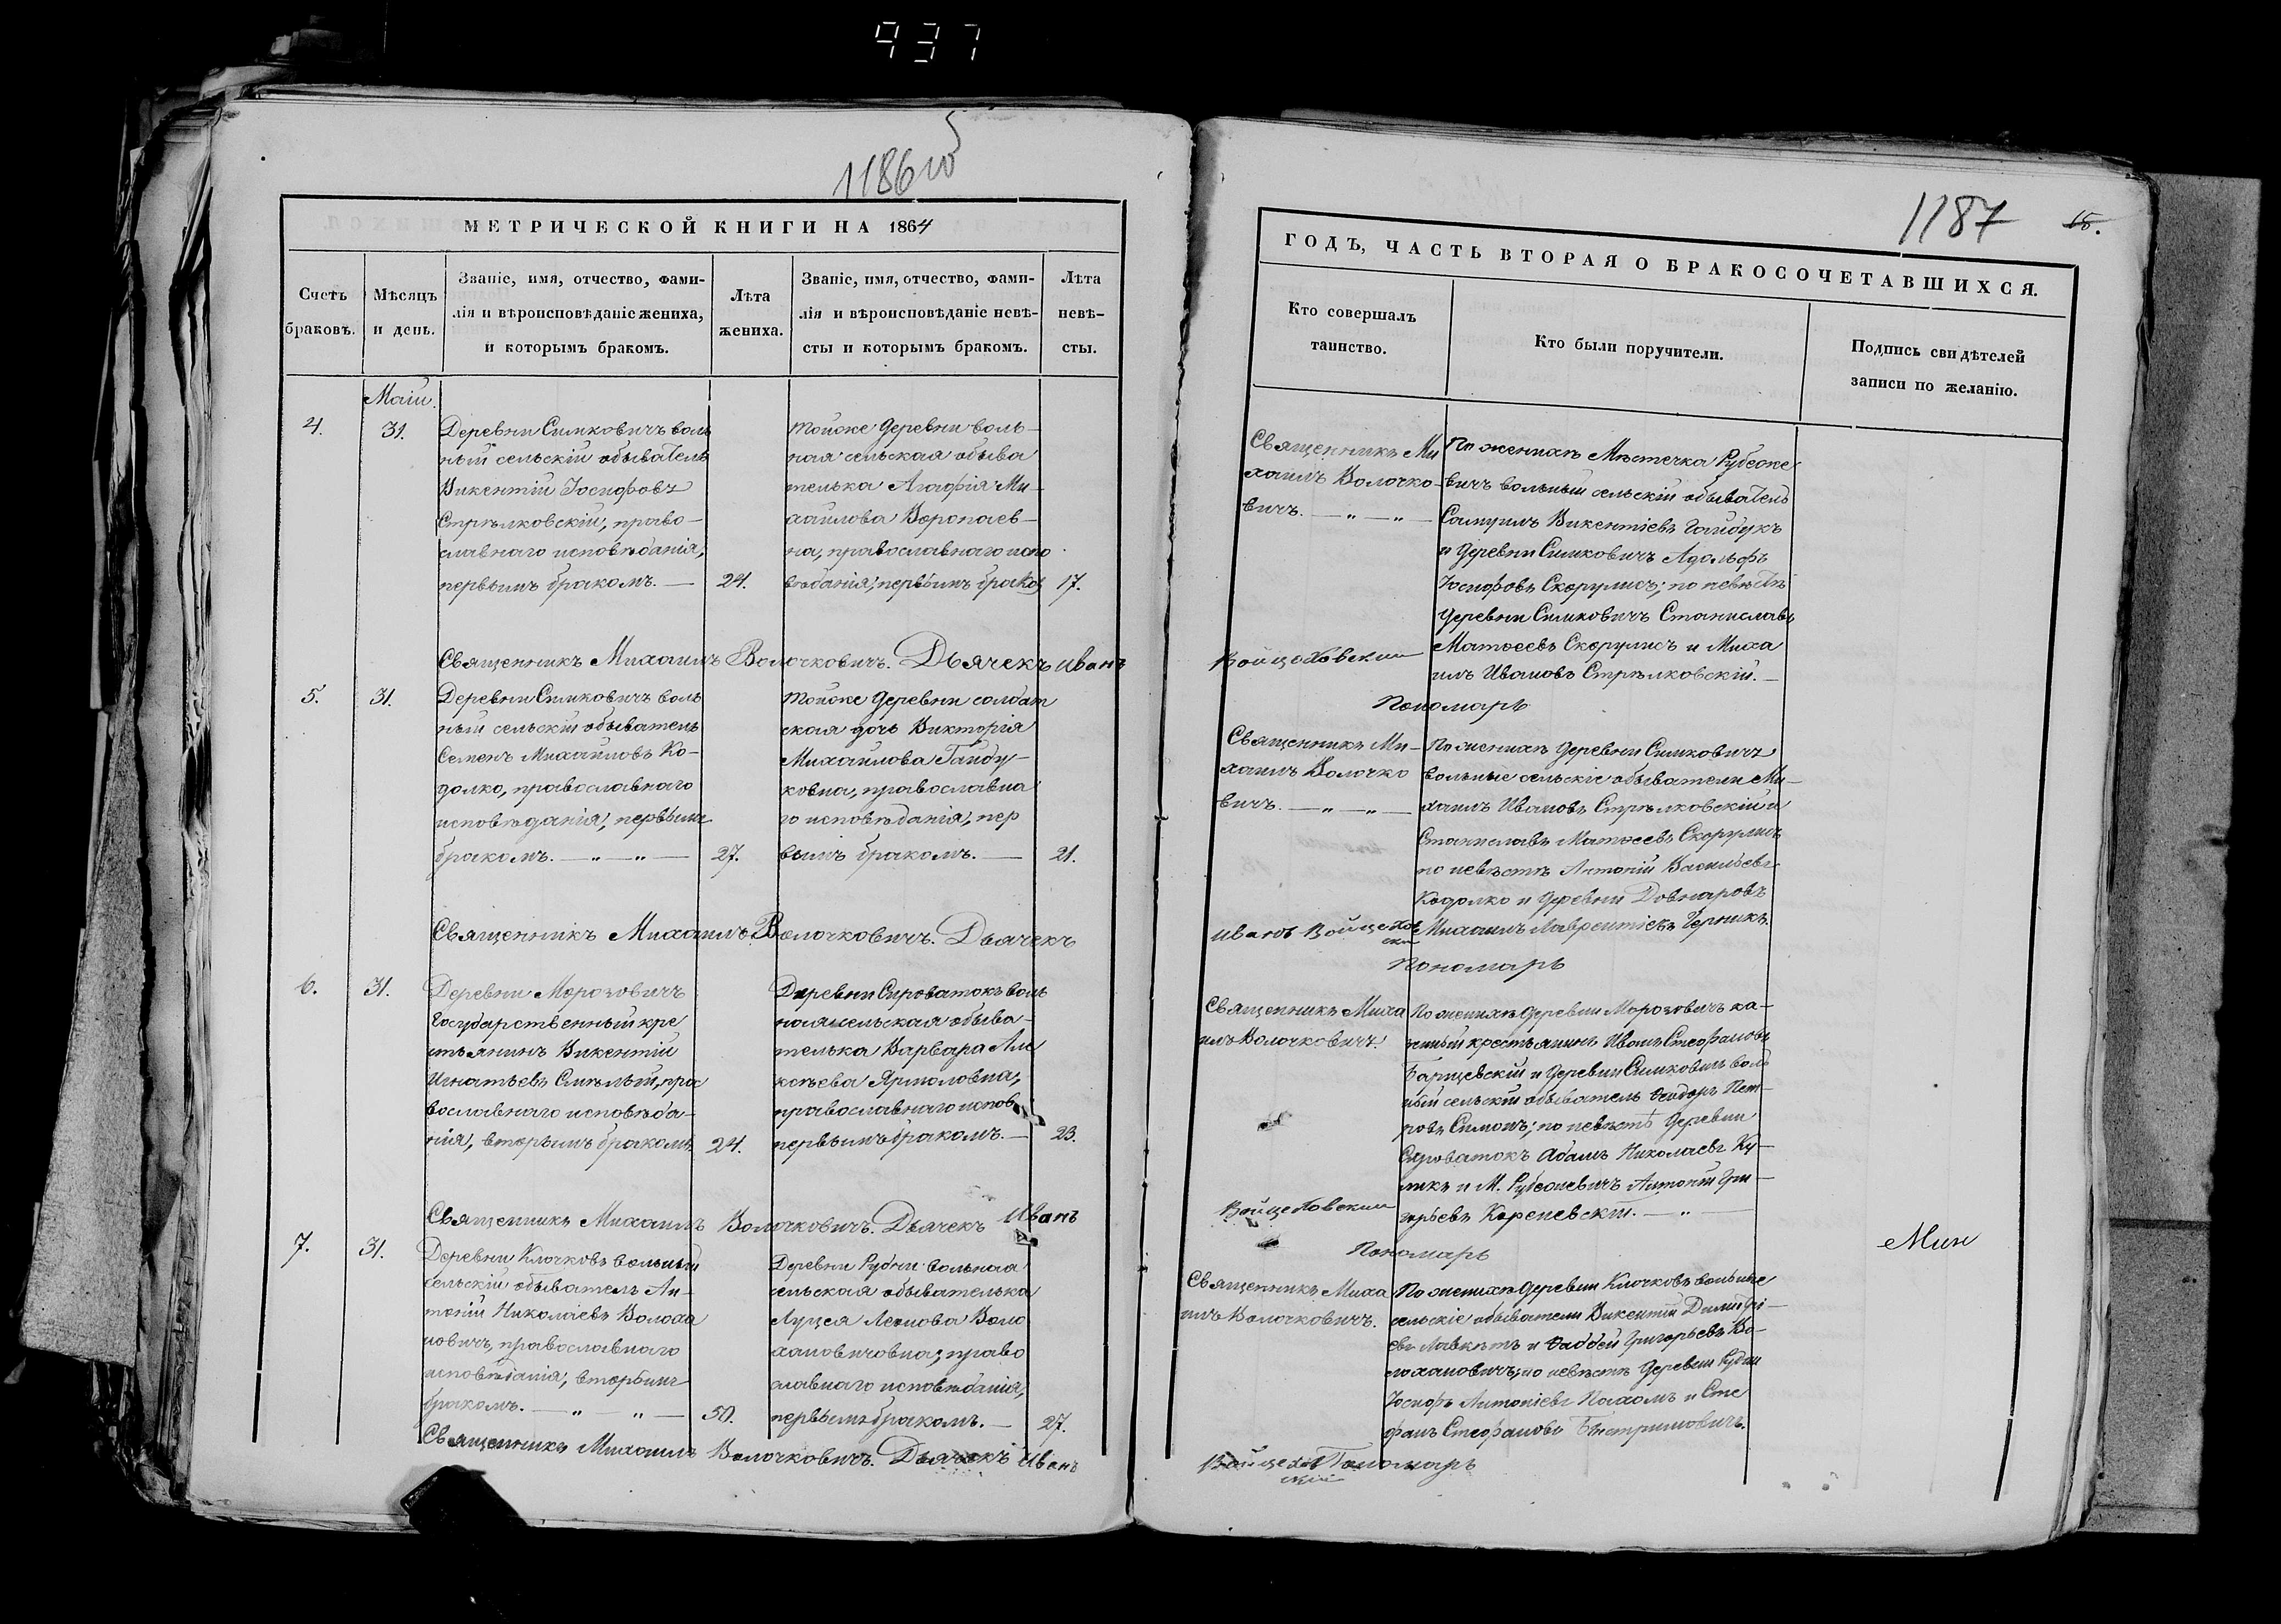 937
1186 об
МЕТРИЧЕСКОЙ КНИГИ НА 1864
Счетъ
браковъ.
Мѣсяцъ
и день.
Званіе, имя, отчество, фами-
лія и вѣроисповѣданіе жениха,
и которымъ бракомъ.
Лѣта
жениха.
Званіе, имя, отчество, фами-
лія и вѣроисповѣданіе невѣ-
сты и которымъ бракомъ.
Лѣта
невѣ-
сты.
Маій.
4.
31.
Деревни Симковичъ воль
ный сельскій обыватель
Викентій Іосифовъ
Стрѣлковскій, право-
славнаго исповѣданія,
первымъ бракомъ. —
24.
тойже деревни воль-
ная сельская обыва
телька Агафія Ми-
хайлова Воропаев-
на, православнаго испо
вѣданія, первымъ браком
17.
Священникъ Михаилъ Волочковичъ. Дьячекъ Иванъ
5.
31.
Деревни Симковичъ воль
ный сельскій обыватель
Семенъ Михайловъ Ко-
долко, православнаго
исповѣданія, первымъ
бракомъ. — „ — „ —
27.
тойже деревни солдат
ская дочь Викторія
Михайлова Гайду-
ковна, православна
го исповѣданія, пер
вымъ бракомъ. —
21.
Священникъ Михаилъ Волочковичъ. Дьячекъ
6.
31.
Деревни Морозовичъ
Государственный кре
стьянинъ Викентій
Игнатьевъ Смѣлый, пра
вославнаго исповѣда-
нія, вторымъ бракомъ
24.
Деревни Сыроватокъ воль
ная сельская обыва-
телька Варвара Але
ксѣева Ярмоловна,
православнаго испов
первымъ бракомъ. —
23.
Священникъ Михаилъ Волочковичъ. Дьячекъ Иванъ
7.
31.
Деревни Клочковъ вольный
сельскій обыватель Ан-
тоній Николаевъ Волоха
новичъ, православнаго
исповѣданія, вторымъ
бракомъ. — „ — „ —
50.
Деревни Рудни вольная
сельская обывателька
Луцея Леонова Воло
хановичовна, право
славнаго исповѣданія,
первымъ бракомъ. —
27.
Священникъ Михаилъ Волочковичъ. Дьячекъ Иванъ
1187
15.
ГОДЪ, ЧАСТЬ ВТОРАЯ О БРАКОСОЧЕТАВШИХСЯ.
Кто совершалъ
таинство.
Кто были поручители.
Подпись свидѣтелей
записи по желанію.
Священникъ Ми
хаилъ Волочко-
вичъ. — „ — „ —
По женихѣ Мѣстечка Рубеже
вичъ вольный сельскій обыватель
Самуилъ Викентіевъ Гайдукъ
и деревни Симковичъ Адольфъ
Іосифовъ Скорулисъ; по невѣстѣ
деревни Симковичъ Станиславъ
Матѳеевъ Скорулисъ и Миха
илъ Ивановъ Стрѣлковскій. —
Войцеховскій
Пономарь
Священникъ Ми-
хаилъ Волочко
вичъ. — „ — „ —
По женихѣ деревни Симковичъ
вольные сельскіе обыватели Ми-
хаилъ Ивановъ Стрѣлковскій и
Станиславъ Матѳеевъ Скорулисъ
по невѣстѣ Антоній Васильевъ
Кодолко и деревни Довнаровъ
Михаилъ Лаврентіевъ Черникъ.
Иванъ Войцехов
скій
Пономарь
Священникъ Миха
илъ Волочковичъ.
По женихѣ деревни Морозовичъ ка-
зенный крестьянинъ Иванъ Стефановъ
Барщевскій и деревни Симковичъ воль
ный сельскій обыватель Ѳеодоръ Пет-
ровъ Симонъ; по невѣстѣ деревни
Сыроватокъ Адамъ Николаевъ Ку-
ликъ и М. Рубежевичъ Антоній Гри-
горьевъ Кореневскій. — „ —
Войцеховскій
Пономарь
Мин
Священникъ Миха
илъ Волочковичъ.
По женихѣ деревни Клочковъ вольные
сельскіе обыватели Викентій Димитрі-
евъ Лавкѣтъ и Ѳаддей Григорьевъ Во-
лохановичъ; по невѣстѣ деревни Рудни
Іосифъ Антоніевъ Пахомъ и Сте
фанъ Стефановъ Быстримовичъ.
Войцехов Пономарь
скій